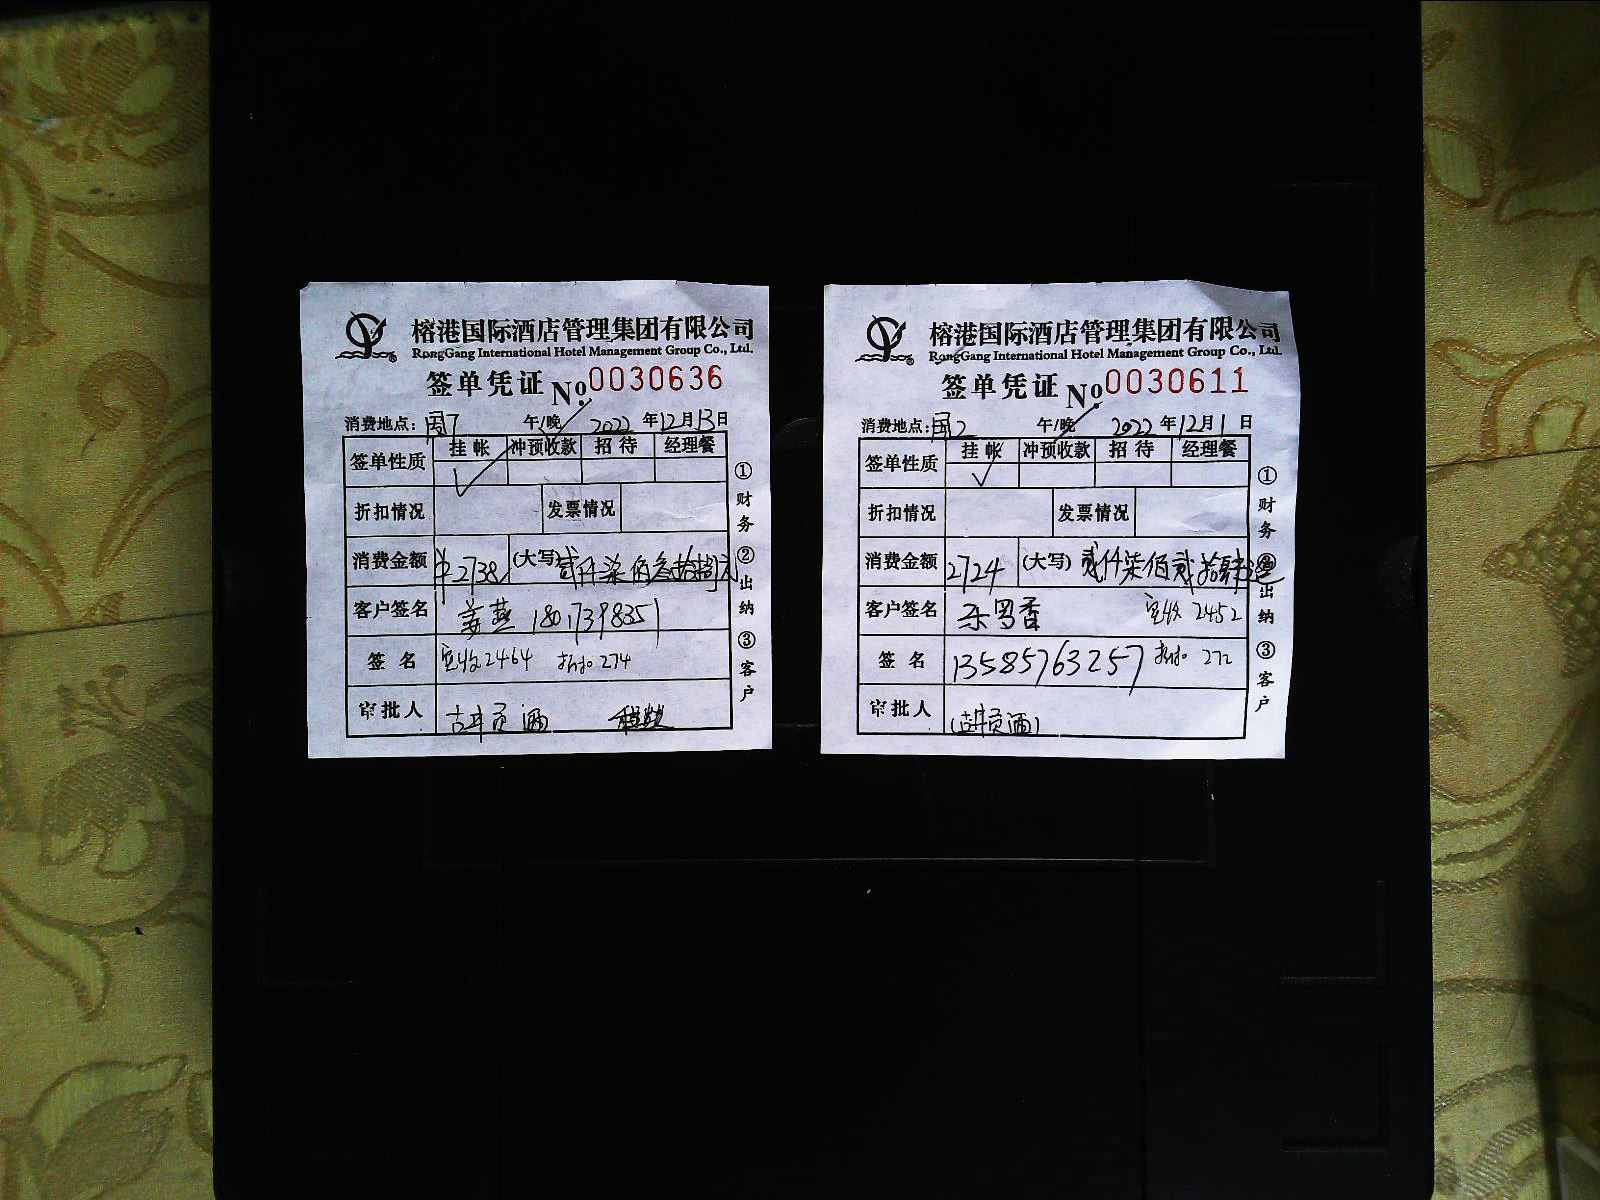 榕港国际酒店管理集团有限公司
RongGang International Hotel Management Group Co., Ltd.
签单凭证 No. 0030636
消费地点: 国7 午/晚 2022 年 12 月 13 日
签单性质 挂帐 冲预收款 招待 经理餐
✓
折扣情况 发票情况
消费金额 ¥2738 (大写) 贰仟柒佰叁拾捌元
客户签名 姜燕 18017398351
签名 实收2464 折扣 274
审批人 古井贡酒
①财务 ②出纳 ③客户
榕港国际酒店管理集团有限公司
RongGang International Hotel Management Group Co., Ltd.
签单凭证 No. 0030611
消费地点: 国2 午/晚 2022 年 12 月 1 日
签单性质 挂帐 冲预收款 招待 经理餐
✓
折扣情况 发票情况
消费金额 2724 (大写) 贰仟柒佰贰拾肆元
客户签名 实收 2452
签名 13585763257 折扣 272
审批人 (古井贡酒)
①财务 ②出纳 ③客户